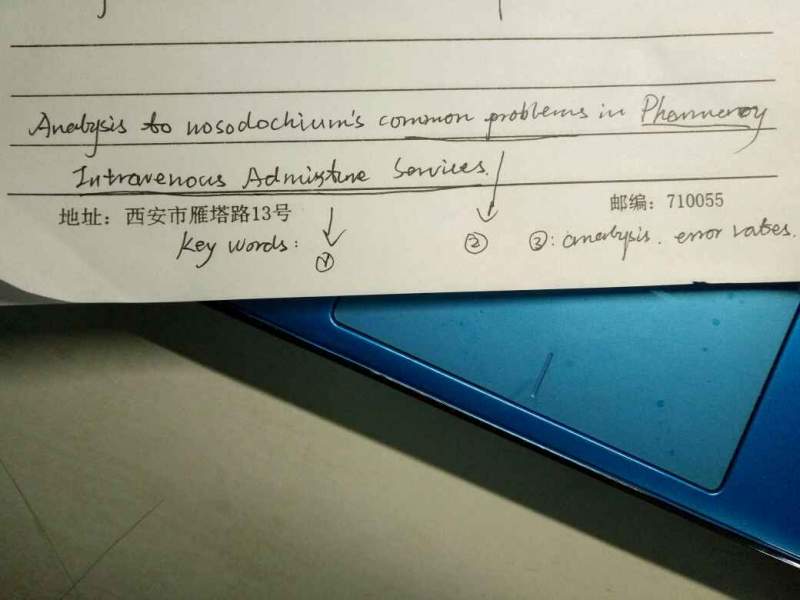 Analysis to nosodochium's common problems in Pharmercy
Intravenous Admixture Services.
地址：西安市雁塔路13号
邮编：710055
Key words： ① ② ③：analysis. error rates.